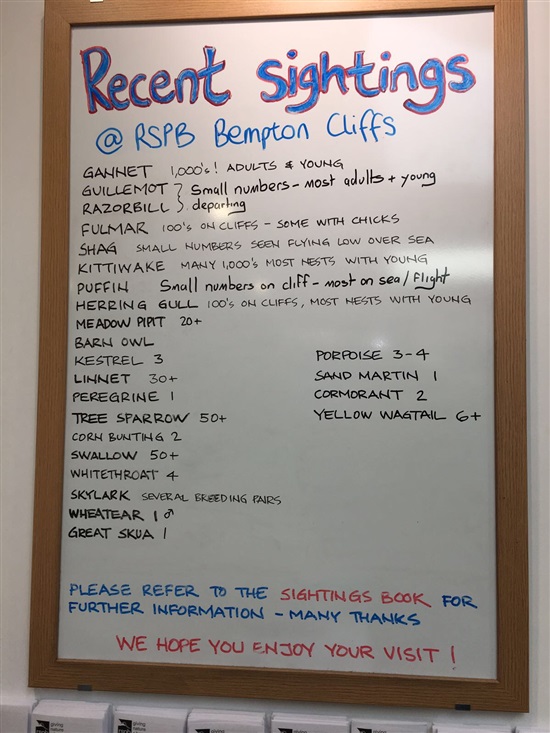 Recent sightings
@ RSPB Bempton Cliffs
GANNET 1,000's! ADULTS & YOUNG
GUILLEMOT } Small numbers - most adults + young
RAZORBILL } departing
FULMAR 100's ON CLIFFS - SOME WITH CHICKS
SHAG SMALL NUMBERS SEEN FLYING LOW OVER SEA
KITTIWAKE MANY 1,000's MOST NESTS WITH YOUNG
PUFFIN Small numbers on cliff - most on sea / flight
HERRING GULL 100's ON CLIFFS, MOST NESTS WITH YOUNG
MEADOW PIPIT 20+
BARN OWL
KESTREL 3
LINNET 30+
PEREGRINE 1
TREE SPARROW 50+
CORN BUNTING 2
SWALLOW 50+
WHITETHROAT 4
SKYLARK SEVERAL BREEDING PAIRS
WHEATEAR 1 ♂
GREAT SKUA 1
PORPOISE 3-4
SAND MARTIN 1
CORMORANT 2
YELLOW WAGTAIL 6+
PLEASE REFER TO THE SIGHTINGS BOOK FOR
FURTHER INFORMATION - MANY THANKS
WE HOPE YOU ENJOY YOUR VISIT!
giving
nature
giving
nature
giving
giving
giving